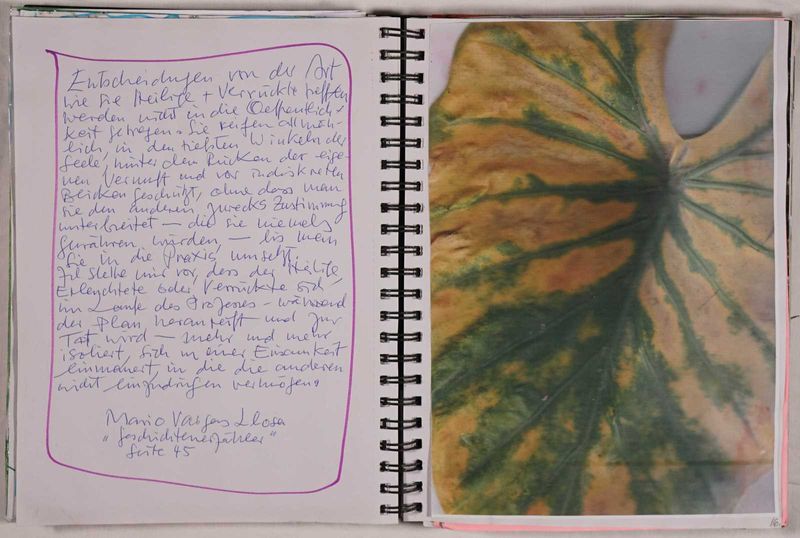 Entscheidungen von der Art
wie sie Heilige + Verrückte treffen
werden nicht in die Oeffentlich-
keit getragen. Sie reifen allmäh-
lich, in den tiefsten Winkeln der
Seele, hinter dem Rücken der eige-
nen Vernunft und vor indiskreten
Blicken geschützt, ohne dass man
sie den anderen zwecks Zustimmung
unterbreitet — die sie niemals
gewähren würden — bis man
sie in die Praxis umsetzt.
Ich stelle mir vor, dass der Heilige,
Erleuchtete oder Verrückte sich
im Laufe des Prozesses - während
der Plan heranreift und zur
Tat wird — mehr und mehr
isoliert, sich in einer Einsamkeit
einmauert, in die die anderen
nicht einzudringen vermögen.
Mario Vargas Llosa
"Geschichtenerzähler"
Seite 45
16.